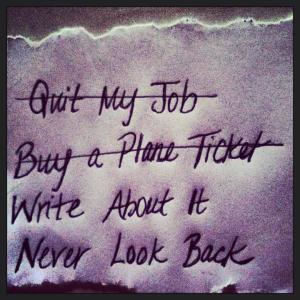 Quit My Job
Buy a Plane Ticket
Write About It
Never Look Back